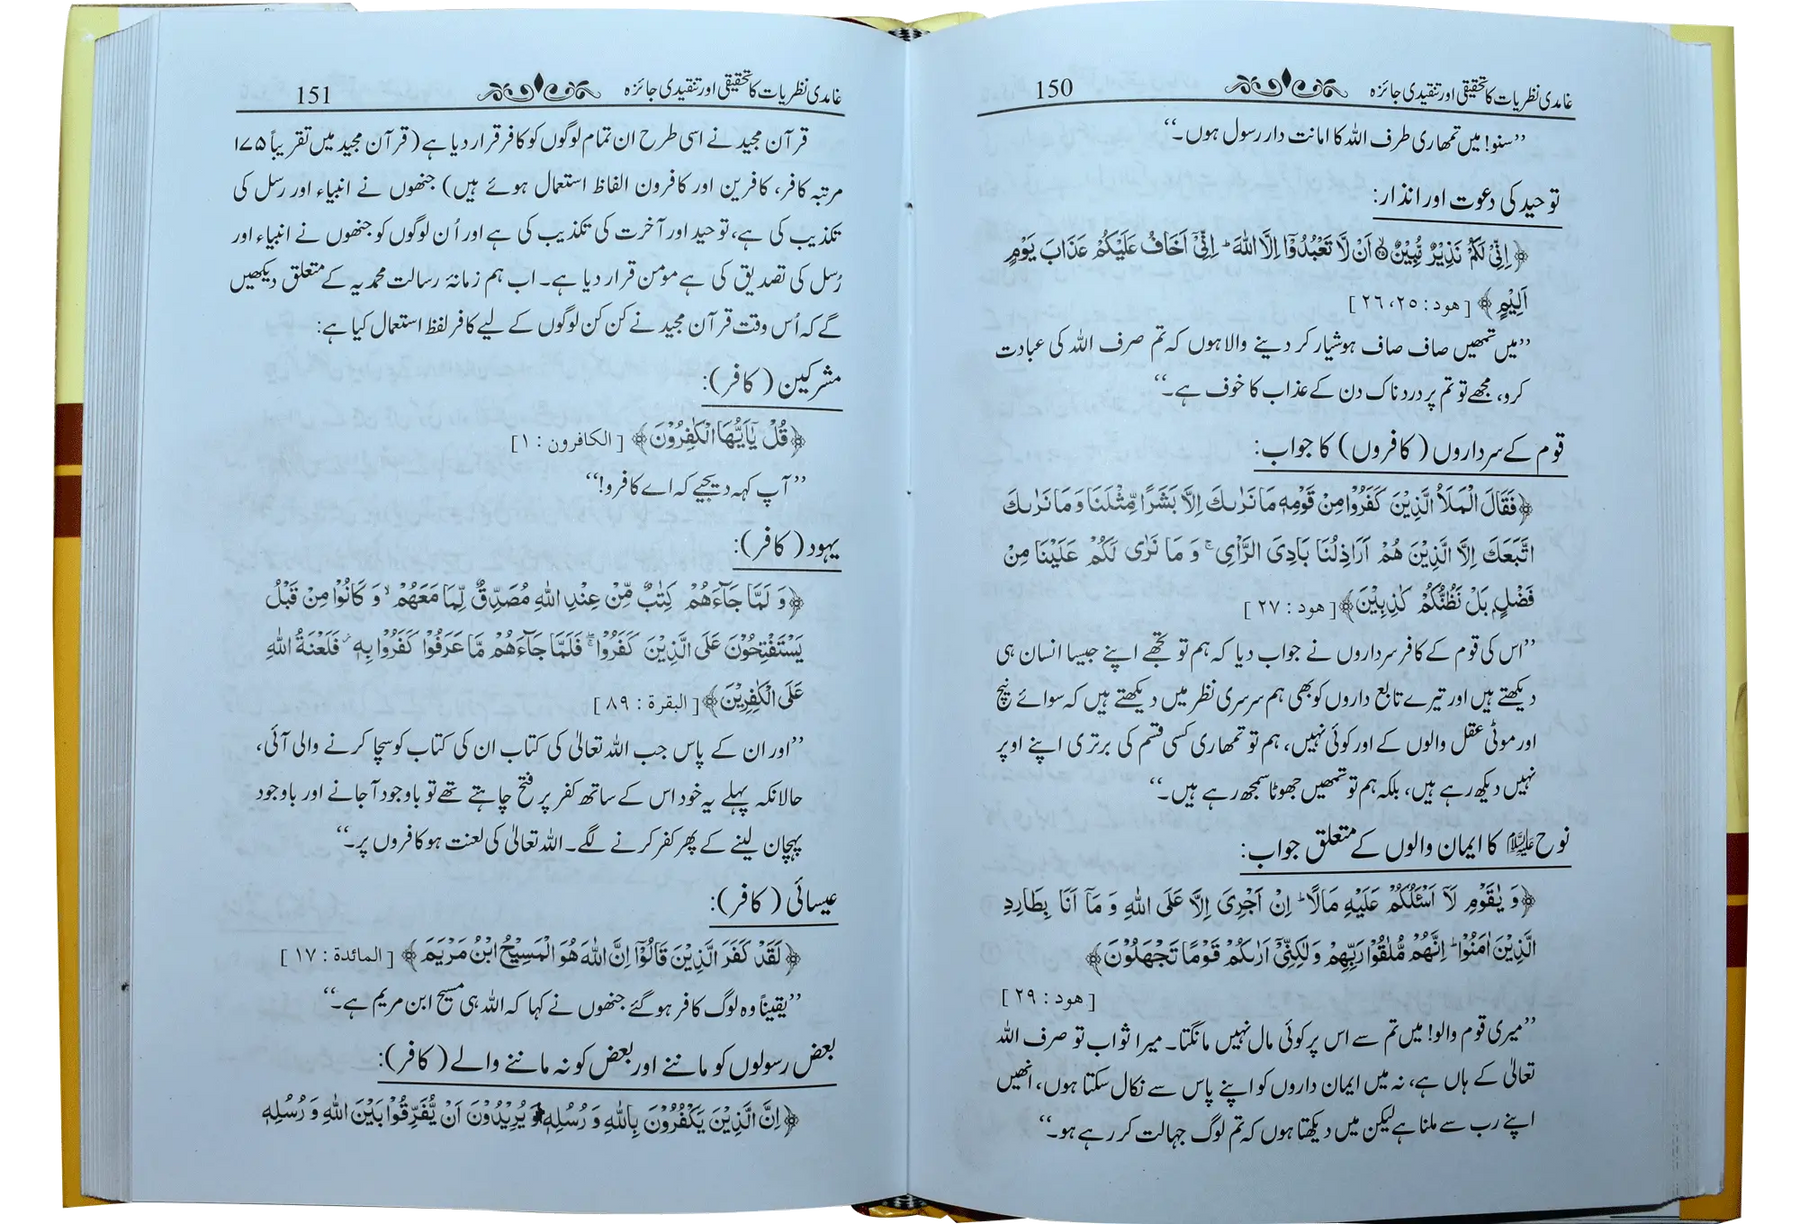 غامدی نظریات کا تحقیقی اور تنقیدی جائزہ 150
’’سنو! میں تمھاری طرف اللہ کا امانت دار رسول ہوں۔‘‘
توحید کی دعوت اور انذار:
﴿اِنِّیْ لَكُمْ نَذِیْرٌ مُّبِیْنٌ۝ اَنْ لَّا تَعْبُدُوْۤا اِلَّا اللّٰهَ ؕ اِنِّیْۤ اَخَافُ عَلَیْكُمْ عَذَابَ یَوْمٍ
اَلِیْمٍ﴾ [هود: ۲۵، ۲۶]
’’میں تمھیں صاف صاف ہوشیار کر دینے والا ہوں کہ تم صرف اللہ کی عبادت
کرو، مجھے تو تم پر دردناک دن کے عذاب کا خوف ہے۔‘‘
قوم کے سرداروں (کافروں) کا جواب:
﴿فَقَالَ الْمَلَاُ الَّذِیْنَ كَفَرُوْا مِنْ قَوْمِهٖ مَا نَرٰىكَ اِلَّا بَشَرًا مِّثْلَنَا وَ مَا نَرٰىكَ
اتَّبَعَكَ اِلَّا الَّذِیْنَ هُمْ اَرَاذِلُنَا بَادِیَ الرَّاْیِ ۚ وَ مَا نَرٰی لَكُمْ عَلَیْنَا مِنْ
فَضْلٍۭ بَلْ نَظُنُّكُمْ كٰذِبِیْنَ﴾ [هود: ۲۷]
’’اس کی قوم کے کافر سرداروں نے جواب دیا کہ ہم تو تجھے اپنے جیسا انسان ہی
دیکھتے ہیں اور تیرے تابع داروں کو بھی ہم سرسری نظر میں دیکھتے ہیں کہ سوائے نیچ
اور موٹی عقل والوں کے اور کوئی نہیں، ہم تو تمھاری کسی قسم کی برتری اپنے اوپر
نہیں دیکھ رہے ہیں، بلکہ ہم تو تمھیں جھوٹا سمجھ رہے ہیں۔‘‘
نوح علیہ السلام کا ایمان والوں کے متعلق جواب:
﴿وَ یٰقَوْمِ لَاۤ اَسْـَٔلُكُمْ عَلَیْهِ مَالًا ؕ اِنْ اَجْرِیَ اِلَّا عَلَی اللّٰهِ وَ مَاۤ اَنَا بِطَارِدِ
الَّذِیْنَ اٰمَنُوْا ؕ اِنَّهُمْ مُّلٰقُوْا رَبِّهِمْ وَ لٰكِنِّیْۤ اَرٰىكُمْ قَوْمًا تَجْهَلُوْنَ﴾
[هود: ۲۹]
’’میری قوم والو! میں تم سے اس پر کوئی مال نہیں مانگتا۔ میرا ثواب تو صرف اللہ
تعالیٰ کے ہاں ہے، نہ میں ایمان داروں کو اپنے پاس سے نکال سکتا ہوں، انھیں
اپنے رب سے ملنا ہے لیکن میں دیکھتا ہوں کہ تم لوگ جہالت کر رہے ہو۔‘‘
غامدی نظریات کا تحقیقی اور تنقیدی جائزہ 151
قرآن مجید نے اسی طرح ان تمام لوگوں کو کافر قرار دیا ہے (قرآن مجید میں تقریباً ۱۷۵
مرتبہ کافر، کافرین اور کافرون الفاظ استعمال ہوئے ہیں) جنھوں نے انبیاء اور رسل کی
تکذیب کی ہے، توحید اور آخرت کی تکذیب کی ہے اور اُن لوگوں کو جنھوں نے انبیاء اور
رُسل کی تصدیق کی ہے مومن قرار دیا ہے۔ اب ہم زمانۂ رسالت محمدیہ کے متعلق دیکھیں
گے کہ اُس وقت قرآن مجید نے کن کن لوگوں کے لیے کافر لفظ استعمال کیا ہے:
مشرکین (کافر):
﴿قُلْ یٰۤاَیُّهَا الْكٰفِرُوْنَ﴾ [الكافرون: ۱]
’’آپ کہہ دیجیے کہ اے کافرو!‘‘
یہود (کافر):
﴿وَ لَمَّا جَآءَهُمْ كِتٰبٌ مِّنْ عِنْدِ اللّٰهِ مُصَدِّقٌ لِّمَا مَعَهُمْ ۙ وَ كَانُوْا مِنْ قَبْلُ
یَسْتَفْتِحُوْنَ عَلَی الَّذِیْنَ كَفَرُوْا ۚ فَلَمَّا جَآءَهُمْ مَّا عَرَفُوْا كَفَرُوْا بِهٖ ؗ فَلَعْنَةُ اللّٰهِ
عَلَی الْكٰفِرِیْنَ﴾ [البقرة: ۸۹]
’’اور ان کے پاس جب اللہ تعالیٰ کی کتاب ان کی کتاب کو سچا کرنے والی آئی،
حالانکہ پہلے یہ خود اس کے ساتھ کفر پر فتح چاہتے تھے تو باوجود آ جانے اور باوجود
پہچان لینے کے پھر کفر کرنے لگے۔ اللہ تعالیٰ کی لعنت ہو کافروں پر۔‘‘
عیسائی (کافر):
﴿لَقَدْ كَفَرَ الَّذِیْنَ قَالُوْۤا اِنَّ اللّٰهَ هُوَ الْمَسِیْحُ ابْنُ مَرْیَمَ﴾ [المائدة: ۱۷]
’’یقیناً وہ لوگ کافر ہو گئے جنھوں نے کہا کہ اللہ ہی مسیح ابن مریم ہے۔‘‘
بعض رسولوں کو ماننے اور بعض کو نہ ماننے والے (کافر):
﴿اِنَّ الَّذِیْنَ یَكْفُرُوْنَ بِاللّٰهِ وَ رُسُلِهٖ وَ یُرِیْدُوْنَ اَنْ یُّفَرِّقُوْا بَیْنَ اللّٰهِ وَ رُسُلِهٖ